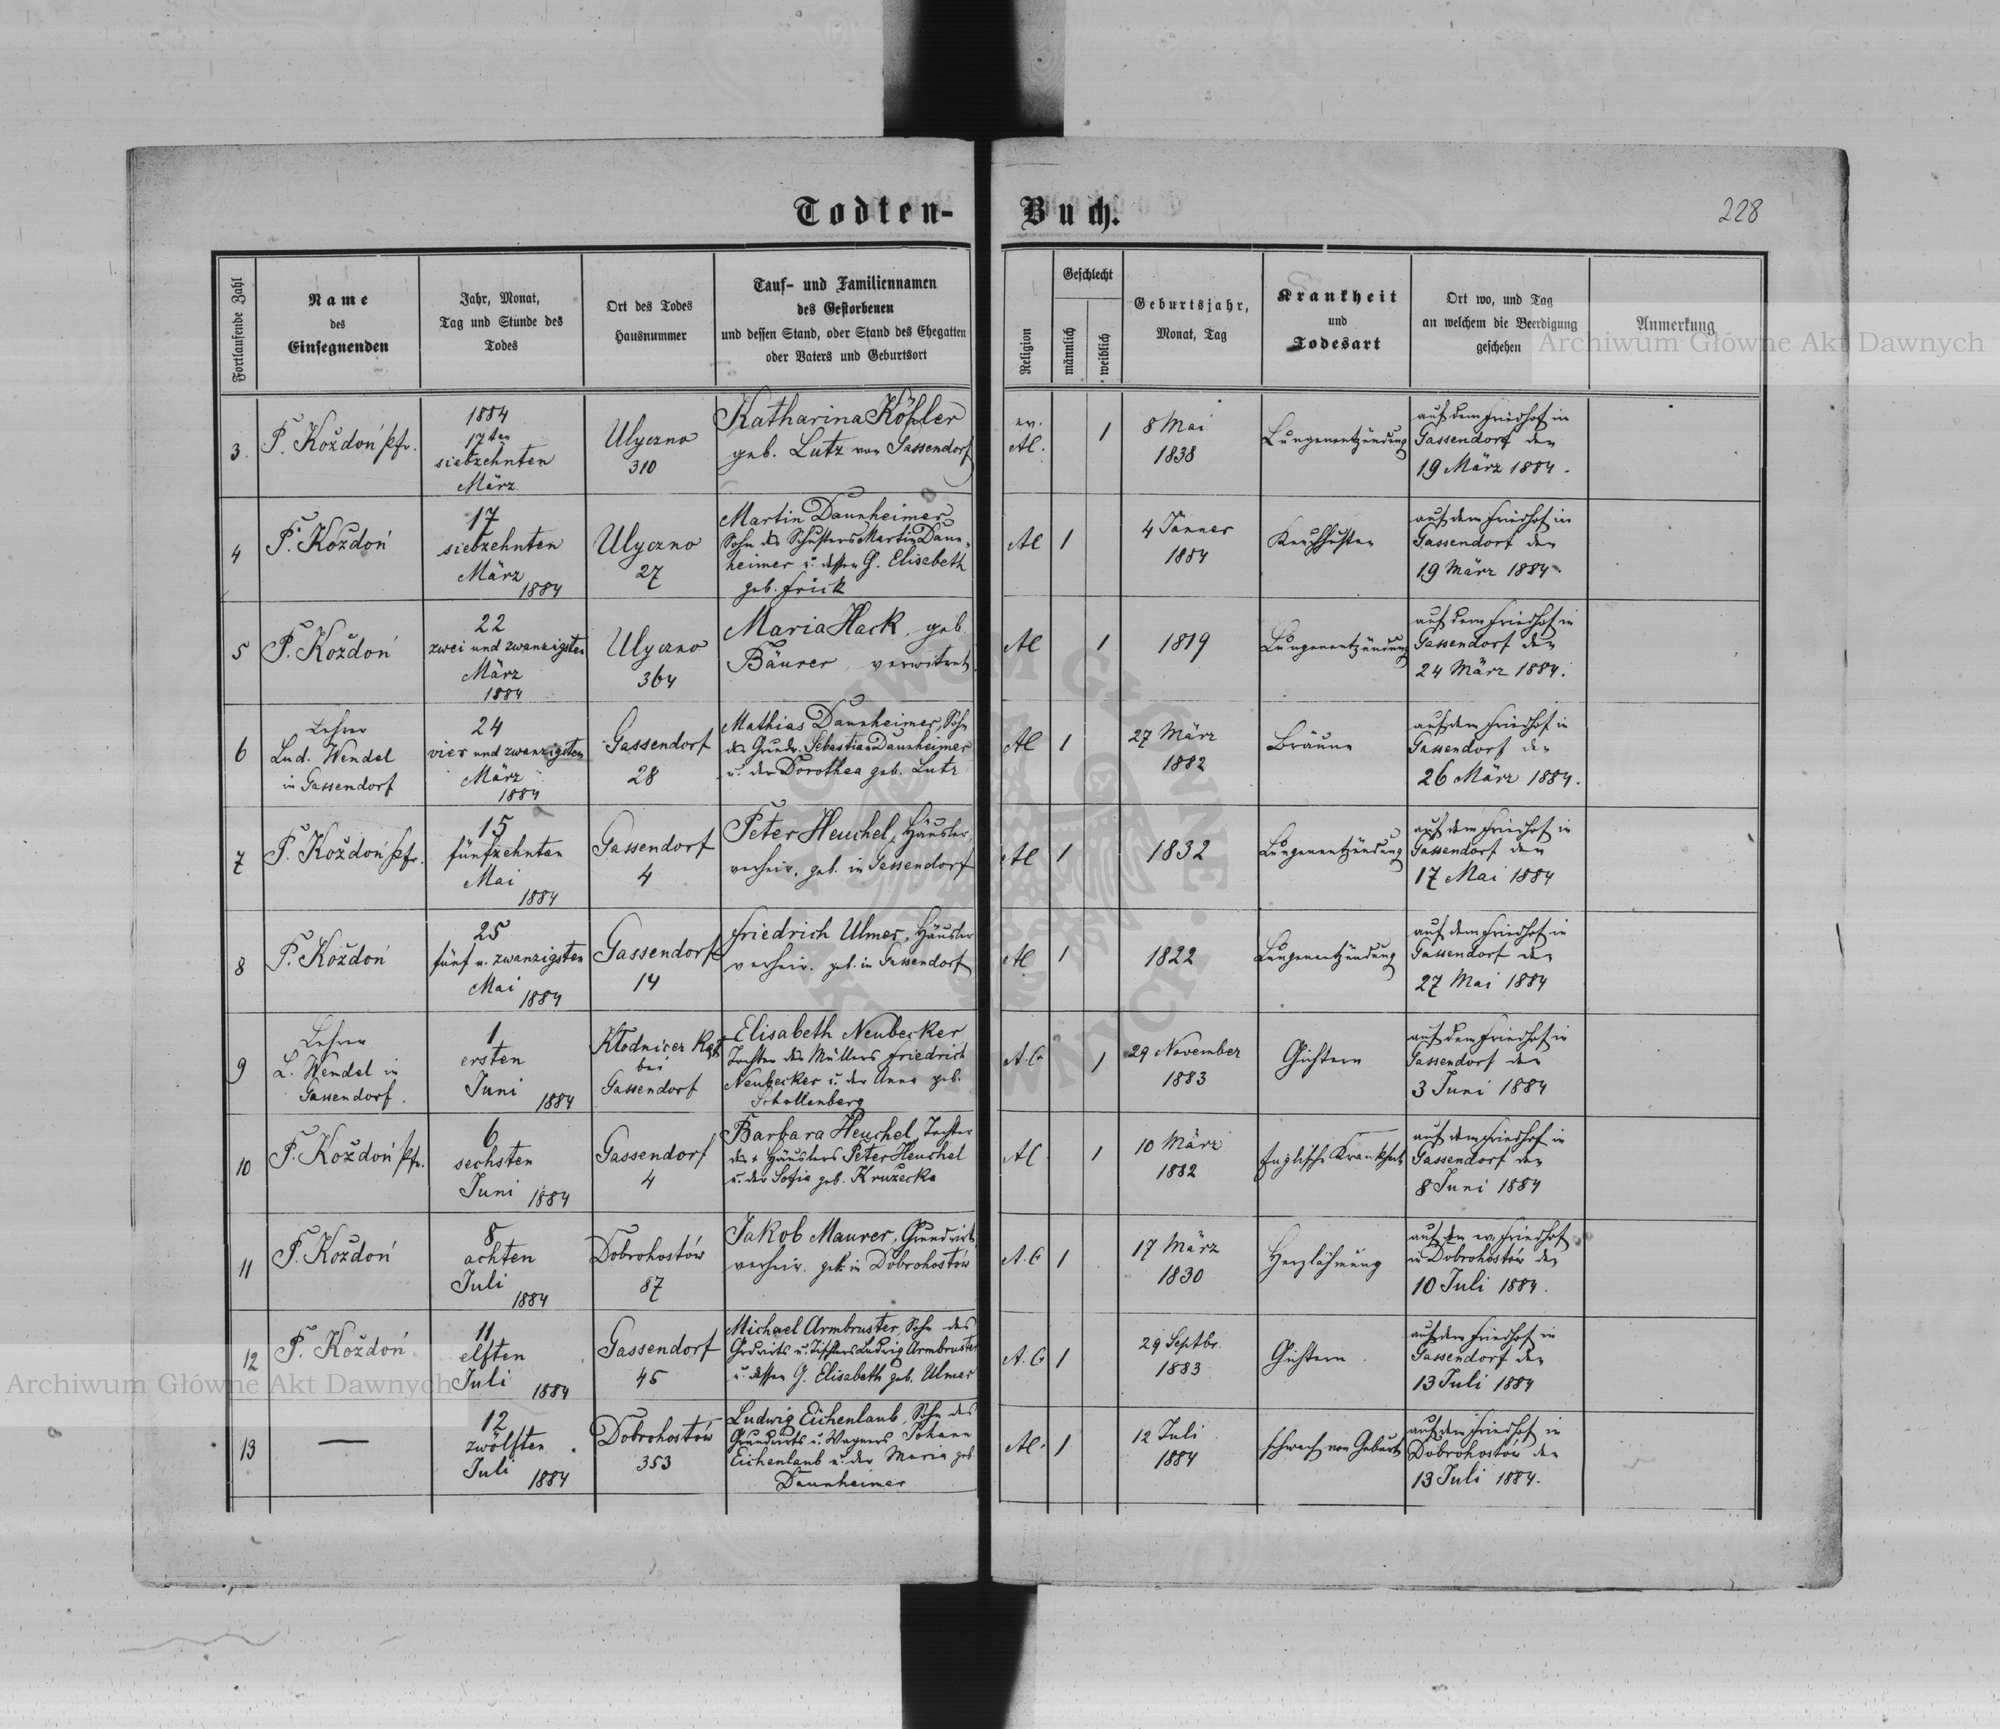 Todten-Buch.
228
Fortlaufende Zahl
Name
des
Einsegnenden
Jahr, Monat,
Tag und Stunde des
Todes
Ort des Todes
Hausnummer
Tauf- und Familiennamen
des Gestorbenen
und dessen Stand, oder Stand des Ehegatten
oder Vaters und Geburtsort
Religion
Geschlecht
männlich
weiblich
Geburtsjahr,
Monat, Tag
Krankheit
und
Todesart
Ort wo, und Tag
an welchem die Beerdigung
geschehen
Anmerkung
3.
P. Kożdoń Pfr.
1884
17ten
siebzehnten
März
Ulyczno
310
Katharina Köhler
geb. Lutz von Gassendorf
ev.
AC.
1
8 Mai
1838
Lungenentzündung
auf dem Friedhof in
Gassendorf den
19 März 1884.
4
P. Kożdoń
17
siebzehnten
März
1884
Ulyczno
27
Martin Daunheimer
Sohn des Schusters Martin Daun-
heimer u. dessen G. Elisabeth
geb. Frick
AC
1
4 Jänner
1884
Keuchhusten
auf dem Friedhof in
Gassendorf den
19 März 1884.
5
P. Kożdoń
22
zwei und zwanzigsten
März
1884
Ulyczno
364
Maria Hack, geb.
Bäurer, verwitwet
AC
1
1819
Lungenentzündung
auf dem Friedhof in
Gassendorf den
24 März 1884.
6
Lehrer
Lud. Wendel
in Gassendorf
24
vier und zwanzigsten
März
1884
Gassendorf
28
Mathias Daunheimer, Sohn
des Grundw. Sebastian Daunheimer
u. der Dorothea geb. Lutz
AC
1
27 März
1882
Bräune
auf dem Friedhof in
Gassendorf den
26 März 1884.
7
P. Kożdoń Pfr.
15
fünfzehnten
Mai
1884
Gassendorf
4
Peter Heuchel, Häusler,
verheir. geb. in Gassendorf
AC
1
1832
Lungenentzündung
auf dem Friedhof in
Gassendorf den
17 Mai 1884
8
P. Kożdoń
25
fünf u. zwanzigsten
Mai
1884
Gassendorf
14
Friedrich Ulmer, Häusler
verheir. geb. in Gassendorf
AC
1
1822
Lungenentzündung
auf dem Friedhof in
Gassendorf den
27 Mai 1884
9
Lehrer
L. Wendel in
Gassendorf.
1
ersten
Juni
1884
Kłodnicer
bei
Gassendorf
Elisabeth Neubecker
Tochter des Müllers Friedrich
Neubecker u. der Anna geb.
Schollenberg
A.C
1
29 November
1883
Gichtern
auf dem Friedhof in
Gassendorf den
3 Juni 1884
10
P. Kożdoń Pfr.
6
sechsten
Juni
1884
Gassendorf
4
Barbara Heuchel, Tochter
des + Häuslers Peter Heuchel
u. der Sofia geb. Kruzecka
AC
1
10 März
1882
Englische Krankheit
auf dem Friedhof in
Gassendorf den
8 Juni 1884
11
P. Kożdoń
8
achten
Juli
1884
Dobrohostów
87
Jakob Maurer, Grundwirt
verheir. geb. in Dobrohostów
A.C
1
17 März
1830
Herzlähmung
auf dem ev. Friedhof
in Dobrohostów den
10 Juli 1884.
12
P. Kożdoń
11
elften
Juli
1884
Gassendorf
45
Michael Armbruster, Sohn des
Grdwirts u. Tischlers Ludwig Armbruster
u. dessen G. Elisabeth geb. Ulmer
A.C
1
29 Septbr.
1883
Gichtern
auf dem Friedhof in
Gassendorf den
13 Juli 1884
13
—
12
zwölften
Juli
1884
Dobrohostów
353
Ludwig Eichenlaub, Sohn des
Grundwirts u. Wagners Johann
Eichenlaub u. der Maria geb.
Daunheimer
AC.
1
12 Juli
1884
schwach von Geburt
auf dem Friedhof in
Dobrohostów den
13 Juli 1884.
Archiwum Główne Akt Dawnych
Archiwum Główne Akt Dawnych